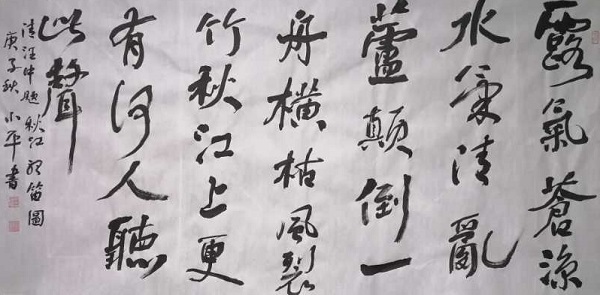 露氣蒼涼
水氣清亂
蘆顛倒一
舟橫枯風裂
竹秋江上更
有何人聽
此聲
清汪中題秋江笛圖
庚子秋小平書